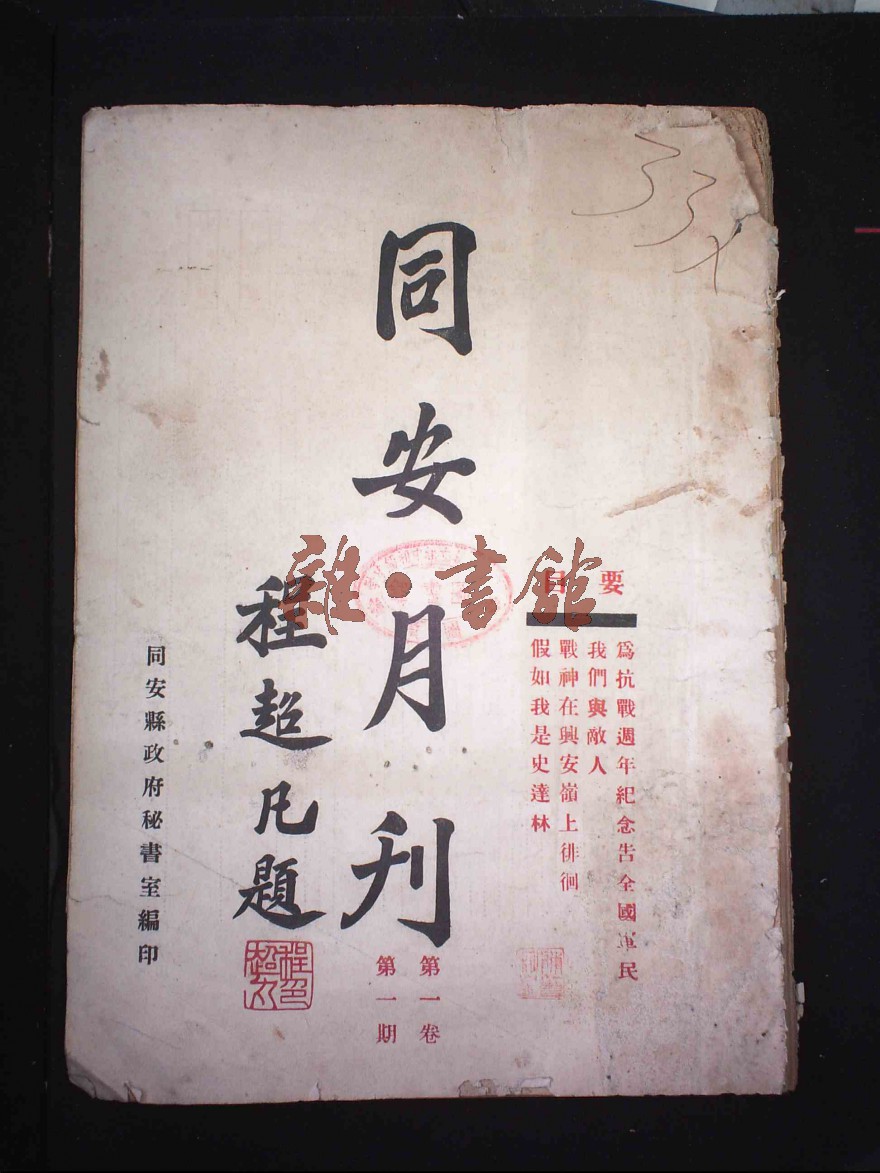 要目
爲抗戰週年紀念告全國軍民
我們與敵人
戰神在興安嶺上徘徊
假如我是史達林
同安月刊
第一卷
第一期
程超凡題
同安縣政府秘書室編印
雜·書館
33